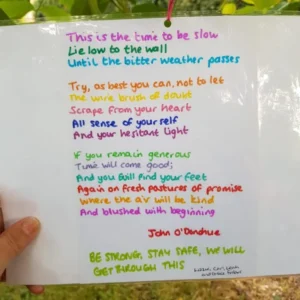 This is the time to be slow
Lie low to the wall
Until the bitter weather passes
Try, as best you can, not to let
The wire brush of doubt
Scrape from your heart
All sense of yourself
And your hesitant light
If you remain generous
Time will come good;
And you will find your feet
Again on fresh pastures of promise
Where the air will be kind
And blushed with beginning
John O'Donohue
BE STRONG, STAY SAFE, WE WILL
GET THROUGH THIS